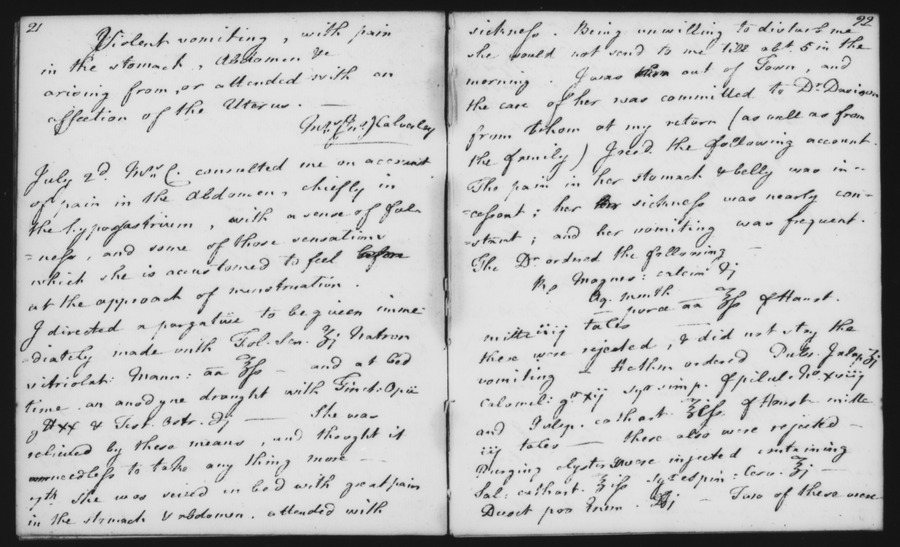 21
Violent vomiting, with pain
in the stomach, Abdomen &c
arising from, or attended with an
affection of the Uterus. —
Mrs Calverley
July 2d. Mrs C. consulted me on account
of pain in the Abdomen, chiefly in
the hypogastrium, with a sense of ful-
=ness, and some of those sensations
which she is accustomed to feel before
at the approach of menstruation.
I directed a purgative to be given imme-
-diately made with Fol. Sen. ʒj Natron
vitriolat: Mann: aa ℥ss — and at bed
time an anodyne draught with Tinct. Opii
gtt xx & Tinct. Castr. ʒj — She was
relieved by these means, and thought it
needless to take any thing more —
7th. She was seized in bed with great pain
in the stomach & abdomen, attended with
22
sickness. Being unwilling to disturb me
she would not send to me till abt. 5 in the
morning. I was out of Town, and
the care of her was committed to Dr. Davison
from whom at my return (as well as from
the family) I recd. the following account.
The pain in her stomach & belly was in-
=cessant; her sickness was nearly con-
=stant; and her vomiting was frequent.
The Dr. ordered the following —
Rx Magnes: calcin ʒj
Aq. menth
— puræ aa ℥ss f Haust.
mitte iiij tales —
these were rejected, & did not stay the
vomiting — He then ordered Pulv. Jalap ʒj
Calomel: grs xij syr. simp. f pilul. No. xviij
and Julep. cathart ℥iss f Haust mitte
iij tales — these also were rejected —
Purging clysters were injected containing
Sal: cathart. ℥iss Syr. e spin: Cerv. ℥j —
Decoct pro Enem. — Two of these were